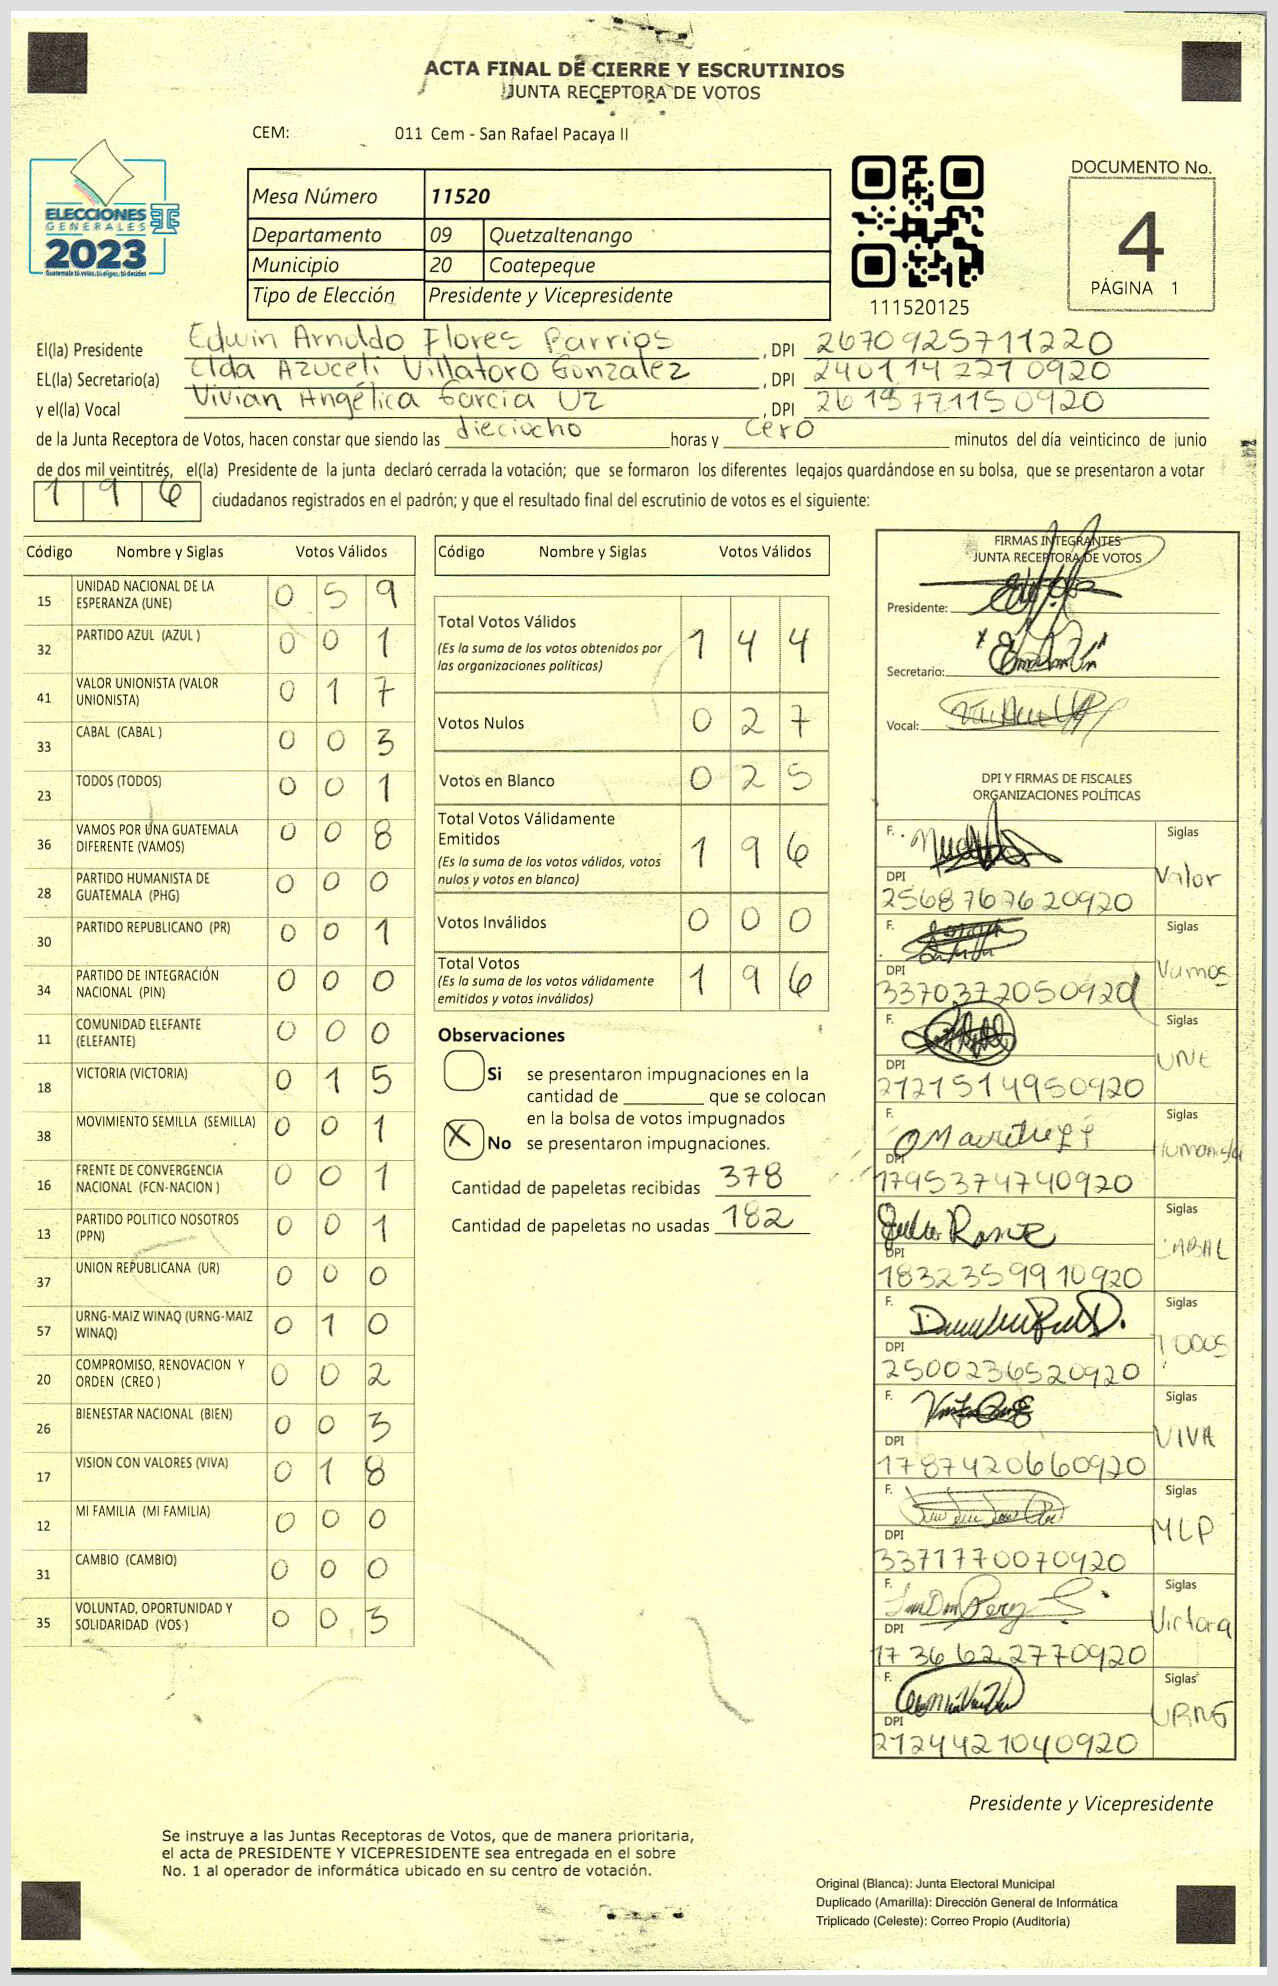 ACTA FINAL DE CIERRE Y ESCRUTINIOS
JUNTA RECEPTORA DE VOTOS
CEM: 011 Cem - San Rafael Pacaya II
ELECCIONES
GENERALES
2023
Guatemala tú votas, tú eliges, tú decides
Mesa Número 11520
Departamento 09 Quetzaltenango
Municipio 20 Coatepeque
Tipo de Elección Presidente y Vicepresidente
111520125
DOCUMENTO No.
4
PÁGINA 1
El(la) Presidente Edwin Arnuldo Flores Barrios, DPI 2670925711220
EL(la) Secretario(a) Elda Azuceli Villatoro Gonzalez, DPI 2401142210920
y el(la) Vocal Vivian Angélica García Uz, DPI 2615771150920
de la Junta Receptora de Votos, hacen constar que siendo las dieciocho horas y cero minutos del día veinticinco de junio
de dos mil veintitrés, el(la) Presidente de la junta declaró cerrada la votación; que se formaron los diferentes legajos quardándose en su bolsa, que se presentaron a votar
196 ciudadanos registrados en el padrón; y que el resultado final del escrutinio de votos es el siguiente:
Código Nombre y Siglas Votos Válidos
15 UNIDAD NACIONAL DE LA ESPERANZA (UNE) 0 5 9
32 PARTIDO AZUL (AZUL ) 0 0 1
41 VALOR UNIONISTA (VALOR UNIONISTA) 0 1 7
33 CABAL (CABAL ) 0 0 3
23 TODOS (TODOS) 0 0 1
36 VAMOS POR UNA GUATEMALA DIFERENTE (VAMOS) 0 0 8
28 PARTIDO HUMANISTA DE GUATEMALA (PHG) 0 0 0
30 PARTIDO REPUBLICANO (PR) 0 0 1
34 PARTIDO DE INTEGRACIÓN NACIONAL (PIN) 0 0 0
11 COMUNIDAD ELEFANTE (ELEFANTE) 0 0 0
18 VICTORIA (VICTORIA) 0 1 5
38 MOVIMIENTO SEMILLA (SEMILLA) 0 0 1
16 FRENTE DE CONVERGENCIA NACIONAL (FCN-NACION ) 0 0 1
13 PARTIDO POLITICO NOSOTROS (PPN) 0 0 1
37 UNION REPUBLICANA (UR) 0 0 0
57 URNG-MAIZ WINAQ (URNG-MAIZ WINAQ) 0 1 0
20 COMPROMISO, RENOVACION Y ORDEN (CREO ) 0 0 2
26 BIENESTAR NACIONAL (BIEN) 0 0 3
17 VISION CON VALORES (VIVA) 0 1 8
12 MI FAMILIA (MI FAMILIA) 0 0 0
31 CAMBIO (CAMBIO) 0 0 0
35 VOLUNTAD, OPORTUNIDAD Y SOLIDARIDAD (VOS ) 0 0 3
Código Nombre y Siglas Votos Válidos
Total Votos Válidos 1 4 4
(Es la suma de los votos obtenidos por
las organizaciones políticas)
Votos Nulos 0 2 7
Votos en Blanco 0 2 5
Total Votos Válidamente
Emitidos 1 9 6
(Es la suma de los votos válidos, votos
nulos y votos en blanco)
Votos Inválidos 0 0 0
Total Votos 1 9 6
(Es la suma de los votos válidamente
emitidos y votos inválidos)
Observaciones
Si se presentaron impugnaciones en la
cantidad de ________ que se colocan
en la bolsa de votos impugnados
X No se presentaron impugnaciones.
Cantidad de papeletas recibidas 378
Cantidad de papeletas no usadas 182
FIRMAS INTEGRANTES
JUNTA RECEPTORA DE VOTOS
Presidente:
Secretario:
Vocal:
DPI Y FIRMAS DE FISCALES
ORGANIZACIONES POLÍTICAS
F. Siglas Valor
DPI 2568767620920
F. Siglas Vamos
DPI 3370372050920
F. Siglas UNE
DPI 2121514950920
F. Siglas Humanista
DPI 1795374740920
F. Siglas CABAL
DPI 1832359910920
F. Siglas TODOS
DPI 2500236520920
F. Siglas VIVA
DPI 1787420660920
F. Siglas MLP
DPI 3371770070920
F. Siglas Victoria
DPI 1736622770920
F. Siglas URNG
DPI 2124421040920
Presidente y Vicepresidente
Se instruye a las Juntas Receptoras de Votos, que de manera prioritaria,
el acta de PRESIDENTE Y VICEPRESIDENTE sea entregada en el sobre
No. 1 al operador de informática ubicado en su centro de votación.
Original (Blanca): Junta Electoral Municipal
Duplicado (Amarilla): Dirección General de Informática
Triplicado (Celeste): Correo Propio (Auditoría)